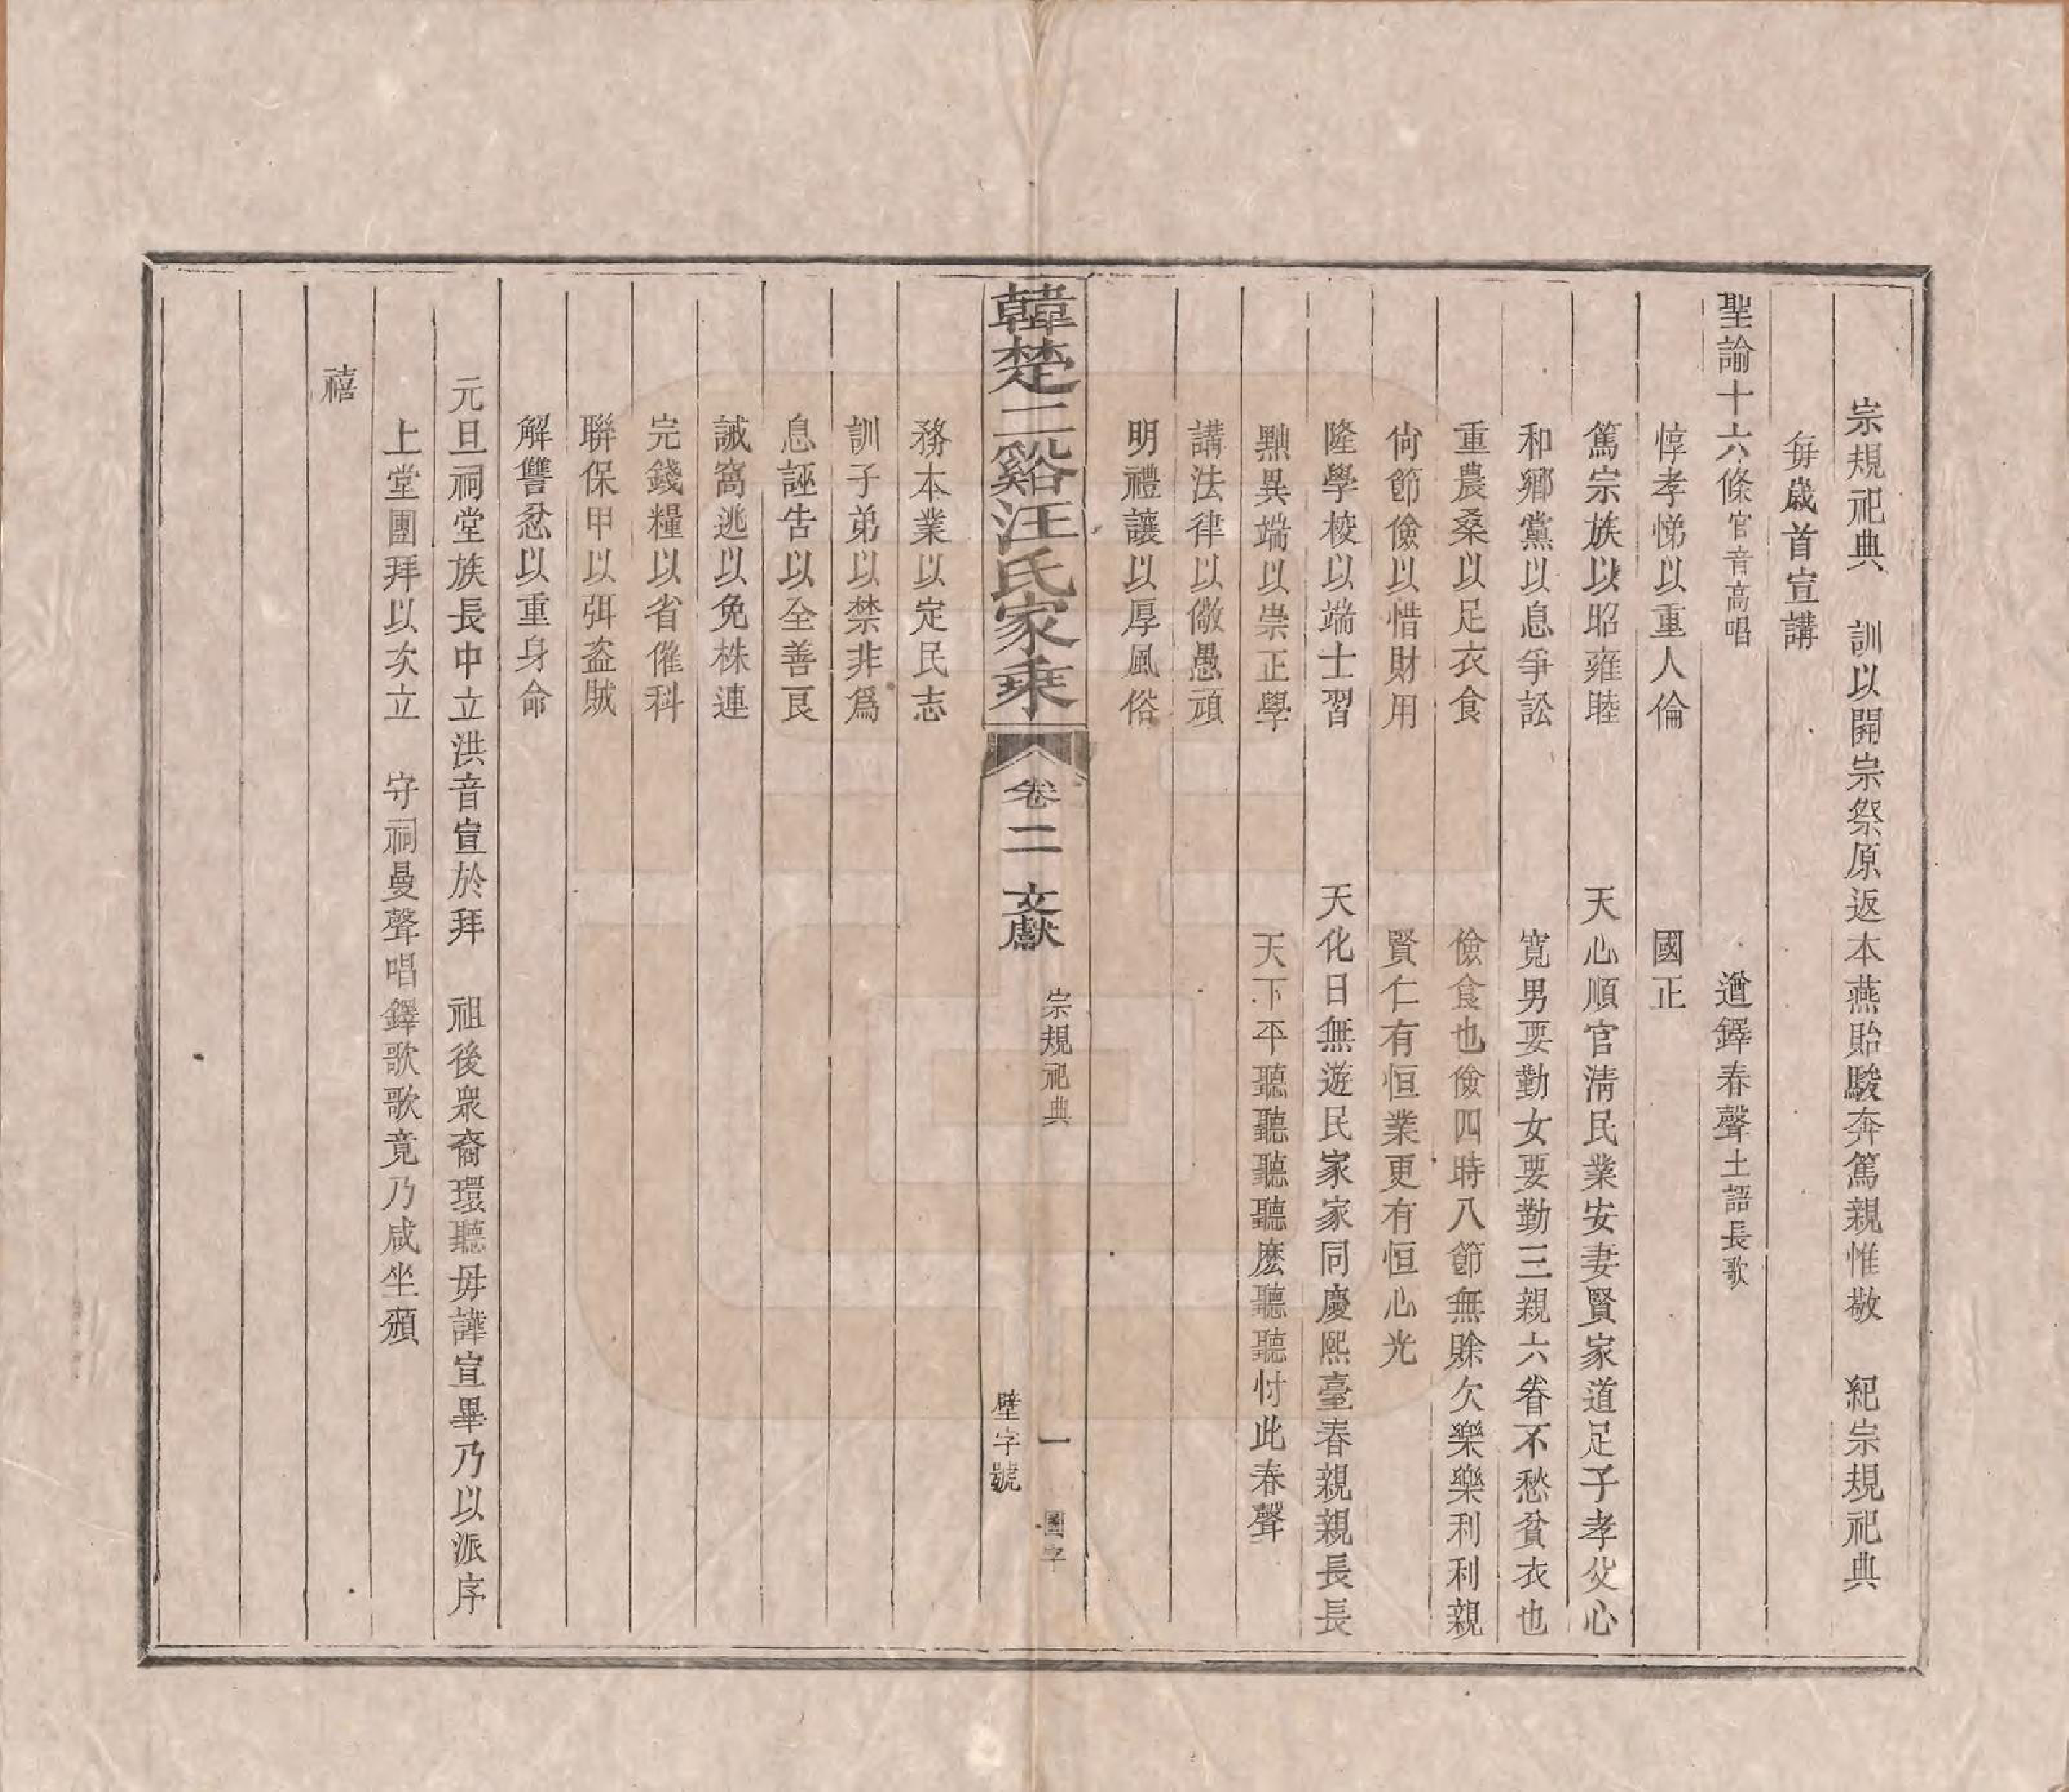 宗規祀典　訓以開宗祭原返本燕貽駿奔篤親惟敬　紀宗規祀典
每歲首宣講
聖諭十六條官音高唱　遒鐸春聲土語長歌
惇孝悌以重人倫　國正
篤宗族以昭雍睦　天心順官淸民業安妻賢家道足子孝父心
和鄉黨以息爭訟　寬男要勤女要勤三親六眷不愁貧衣也
重農桑以足衣食　儉食也儉四時八節無賒欠樂樂利利親
尙節儉以惜財用　賢仁有恒業更有恒心光
隆學校以端士習　天化日無遊民家家同慶熙臺春親親長長
黜異端以崇正學　天下平聽聽聽聽麽聽聽忖此春聲
講法律以儆愚頑
明禮讓以厚風俗
韓楚二谿汪氏家乘　卷二　文獻　宗規祀典　一　壁字號　圖字
務本業以定民志
訓子弟以禁非爲
息誣告以全善良
誡窩逃以免株連
完錢糧以省催科
聯保甲以弭盜賊
解讐忿以重身命
元旦祠堂族長中立洪音宣於拜　祖後衆裔環聽毋譁宣畢乃以派序
上堂團拜以次立　守祠曼聲唱鐸歌歌竟乃咸坐頮
禧